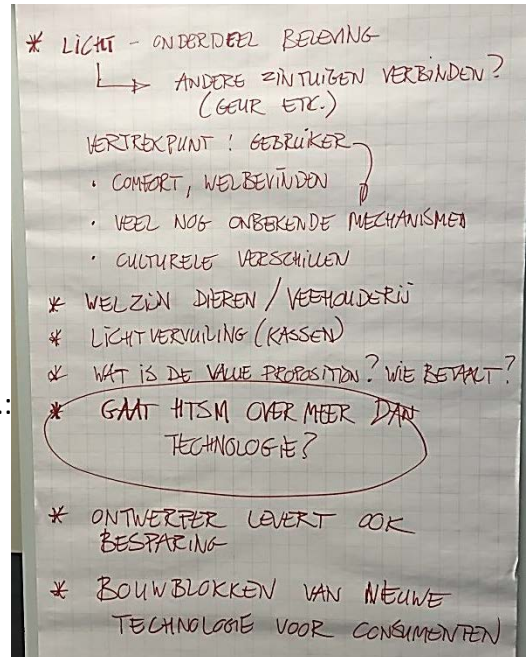 * LICHT - ONDERDEEL BELEVING
ANDERE ZINTUIGEN VERBINDEN?
(GEUR ETC.)
VERTREKPUNT! GEBRUIKER
• COMFORT, WELBEVINDEN
• VEEL NOG ONBEKENDE MECHANISMEN
• CULTURELE VERSCHILLEN
* WELZIJN DIEREN / VEEHOUDERIJ
* LICHTVERVUILING (KASSEN)
* WAT IS DE VALUE PROPOSITION? WIE BETAALT?
* GAAT HTSM OVER MEER DAN
TECHNOLOGIE?
* ONTWERPER LEVERT OOK
BESPARING
* BOUWBLOKKEN VAN NIEUWE
TECHNOLOGIE VOOR CONSUMENTEN